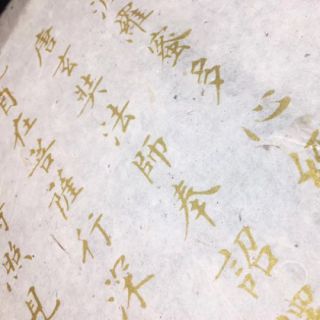 波羅蜜多心經
唐玄奘法師奉詔譯
自在菩薩行深
照見